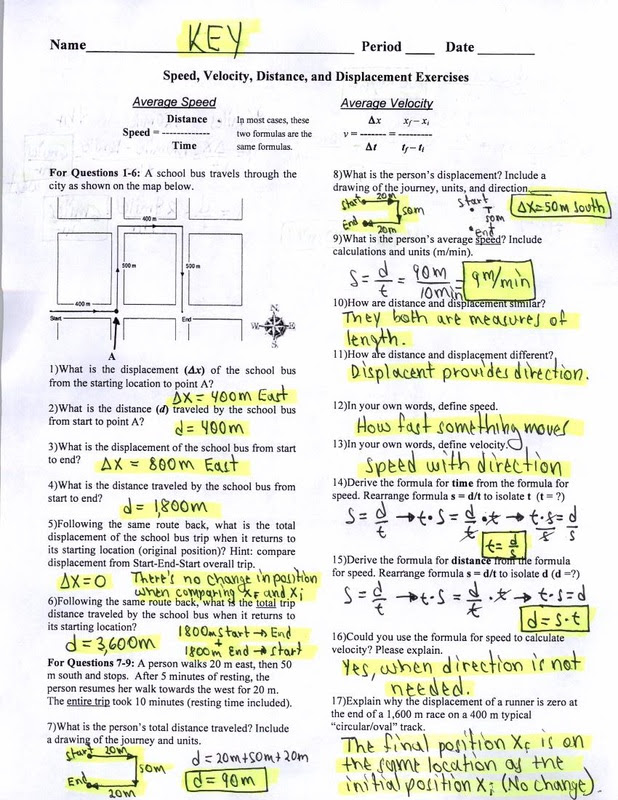 Name KEY Period Date
Speed, Velocity, Distance, and Displacement Exercises
Average Speed
Distance
Speed = -------------
Time
In most cases, these
two formulas are the
same formulas.
Average Velocity
Δx xf – xi
v= ------- = ---------
Δt tf – ti
For Questions 1-6: A school bus travels through the
city as shown on the map below.
400 m
500 m
500 m
400 m
Start
End
N
W
E
S
A
1)What is the displacement (Δx) of the school bus
from the starting location to point A?
ΔX = 400m East
2)What is the distance (d) traveled by the school bus
from start to point A?
d = 400m
3)What is the displacement of the school bus from start
to end? ΔX = 800m East
4)What is the distance traveled by the school bus from
start to end?
d = 1,800m
5)Following the same route back, what is the total
displacement of the school bus trip when it returns to
its starting location (original position)? Hint: compare
displacement from Start-End-Start overall trip.
ΔX=0 There's no change in position
when comparing XF and Xi
6)Following the same route back, what is the total trip
distance traveled by the school bus when it returns to
its starting location?
1800m Start → End
+
d = 3,600m
1800m End → Start
For Questions 7-9: A person walks 20 m east, then 50
m south and stops. After 5 minutes of resting, the
person resumes her walk towards the west for 20 m.
The entire trip took 10 minutes (resting time included).
7)What is the person's total distance traveled? Include
a drawing of the journey and units.
Start 20m
50m
End
20m
d = 20m+50m+20m
d = 90m
8)What is the person's displacement? Include a
drawing of the journey, units, and direction.
Start 20m
50m
End
20m
start
50m
end
ΔX=50m South
9)What is the person's average speed? Include
calculations and units (m/min).
S = d/t = 90m/10min = 9m/min
10)How are distance and displacement similar?
They both are measures of
length.
11)How are distance and displacement different?
Displacent provides direction.
12)In your own words, define speed.
How fast something moves
13)In your own words, define velocity.
Speed with direction
14)Derive the formula for time from the formula for
speed. Rearrange formula s = d/t to isolate t (t = ?)
S = d/t → t·S = d/t·t → t·s/s = d/s
t = d/s
15)Derive the formula for distance from the formula
for speed. Rearrange formula s = d/t to isolate d (d =?)
S = d/t → t·S = d/t·t → t·S=d
d = s·t
16)Could you use the formula for speed to calculate
velocity? Please explain.
Yes, when direction is not
needed.
17)Explain why the displacement of a runner is zero at
the end of a 1,600 m race on a 400 m typical
"circular/oval" track.
The final position XF is on
the same location as the
initial position Xi (No change).